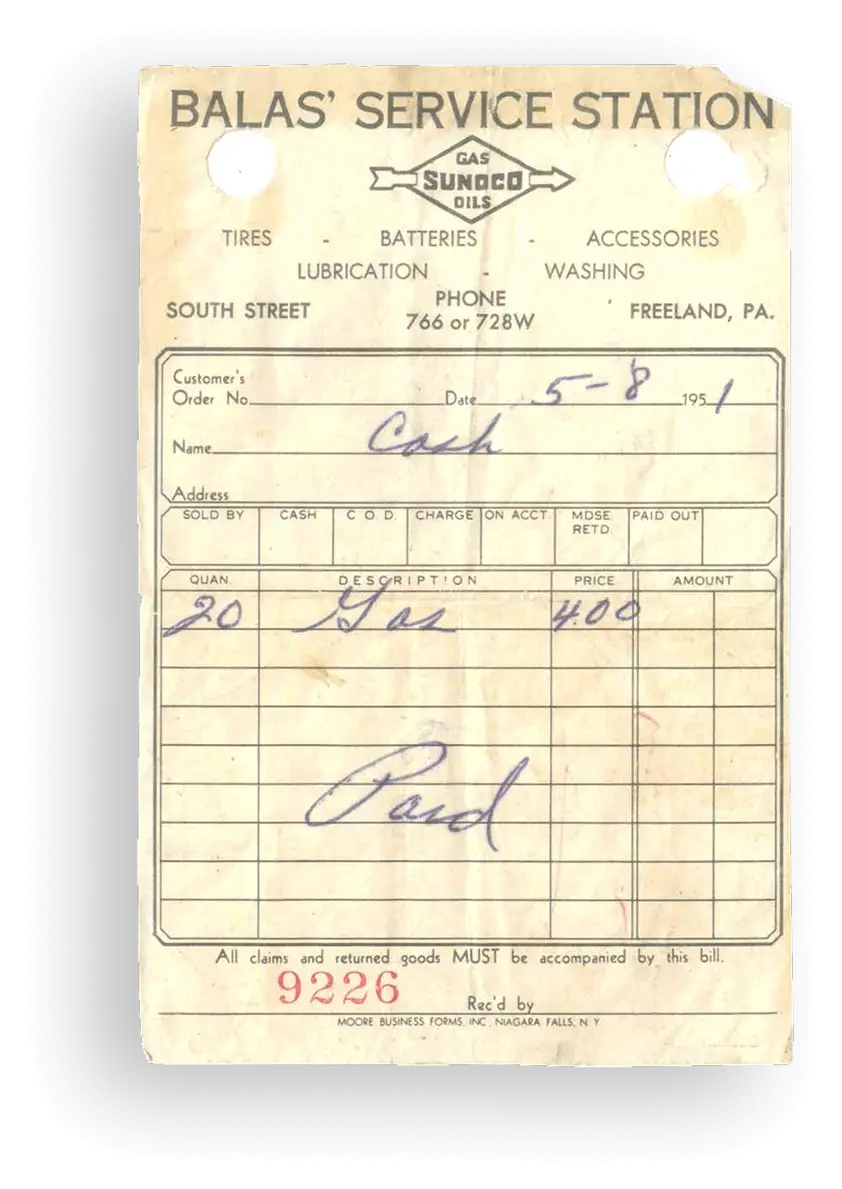 BALAS' SERVICE STATION
GAS
SUNOCO
OILS
TIRES - BATTERIES - ACCESSORIES
LUBRICATION - WASHING
SOUTH STREET PHONE FREELAND, PA.
766 or 728W
Customer's
Order No. Date 5-8 1951
Name Cash
Address
SOLD BY CASH C O D. CHARGE ON ACCT. MDSE. RETD. PAID OUT
QUAN. DESCRIPTION PRICE AMOUNT
20 Gas 4.00
Paid
All claims and returned goods MUST be accompanied by this bill.
9226
Rec'd by
MOORE BUSINESS FORMS, INC., NIAGARA FALLS, N. Y.